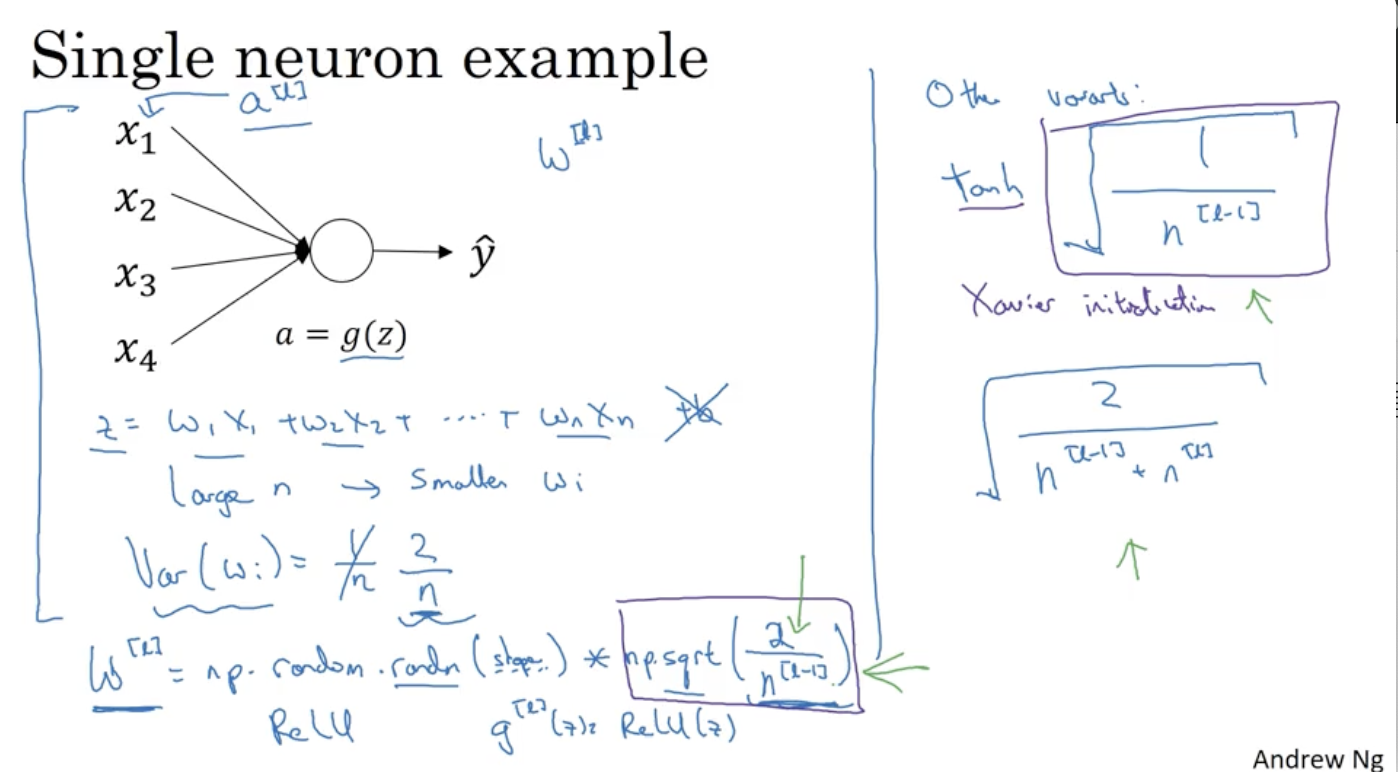 Single neuron example
a^[l]
x₁
x₂
x₃
x₄
ŷ
a = g(z)
w^[l]
z = w₁x₁ + w₂x₂ + ..... + wₙxₙ +b
Large n → Smaller wᵢ
Var(wᵢ) = 1/n 2/n
W^[l] = np.random.randn(shape..) * np.sqrt(2/n^[l-1])
ReLU g^[l](z) = ReLU(z)
Other variants:
tanh √(1/n^[l-1])
Xavier initialization ↑
√(2/(n^[l-1] + n^[l]))
↑
Andrew Ng